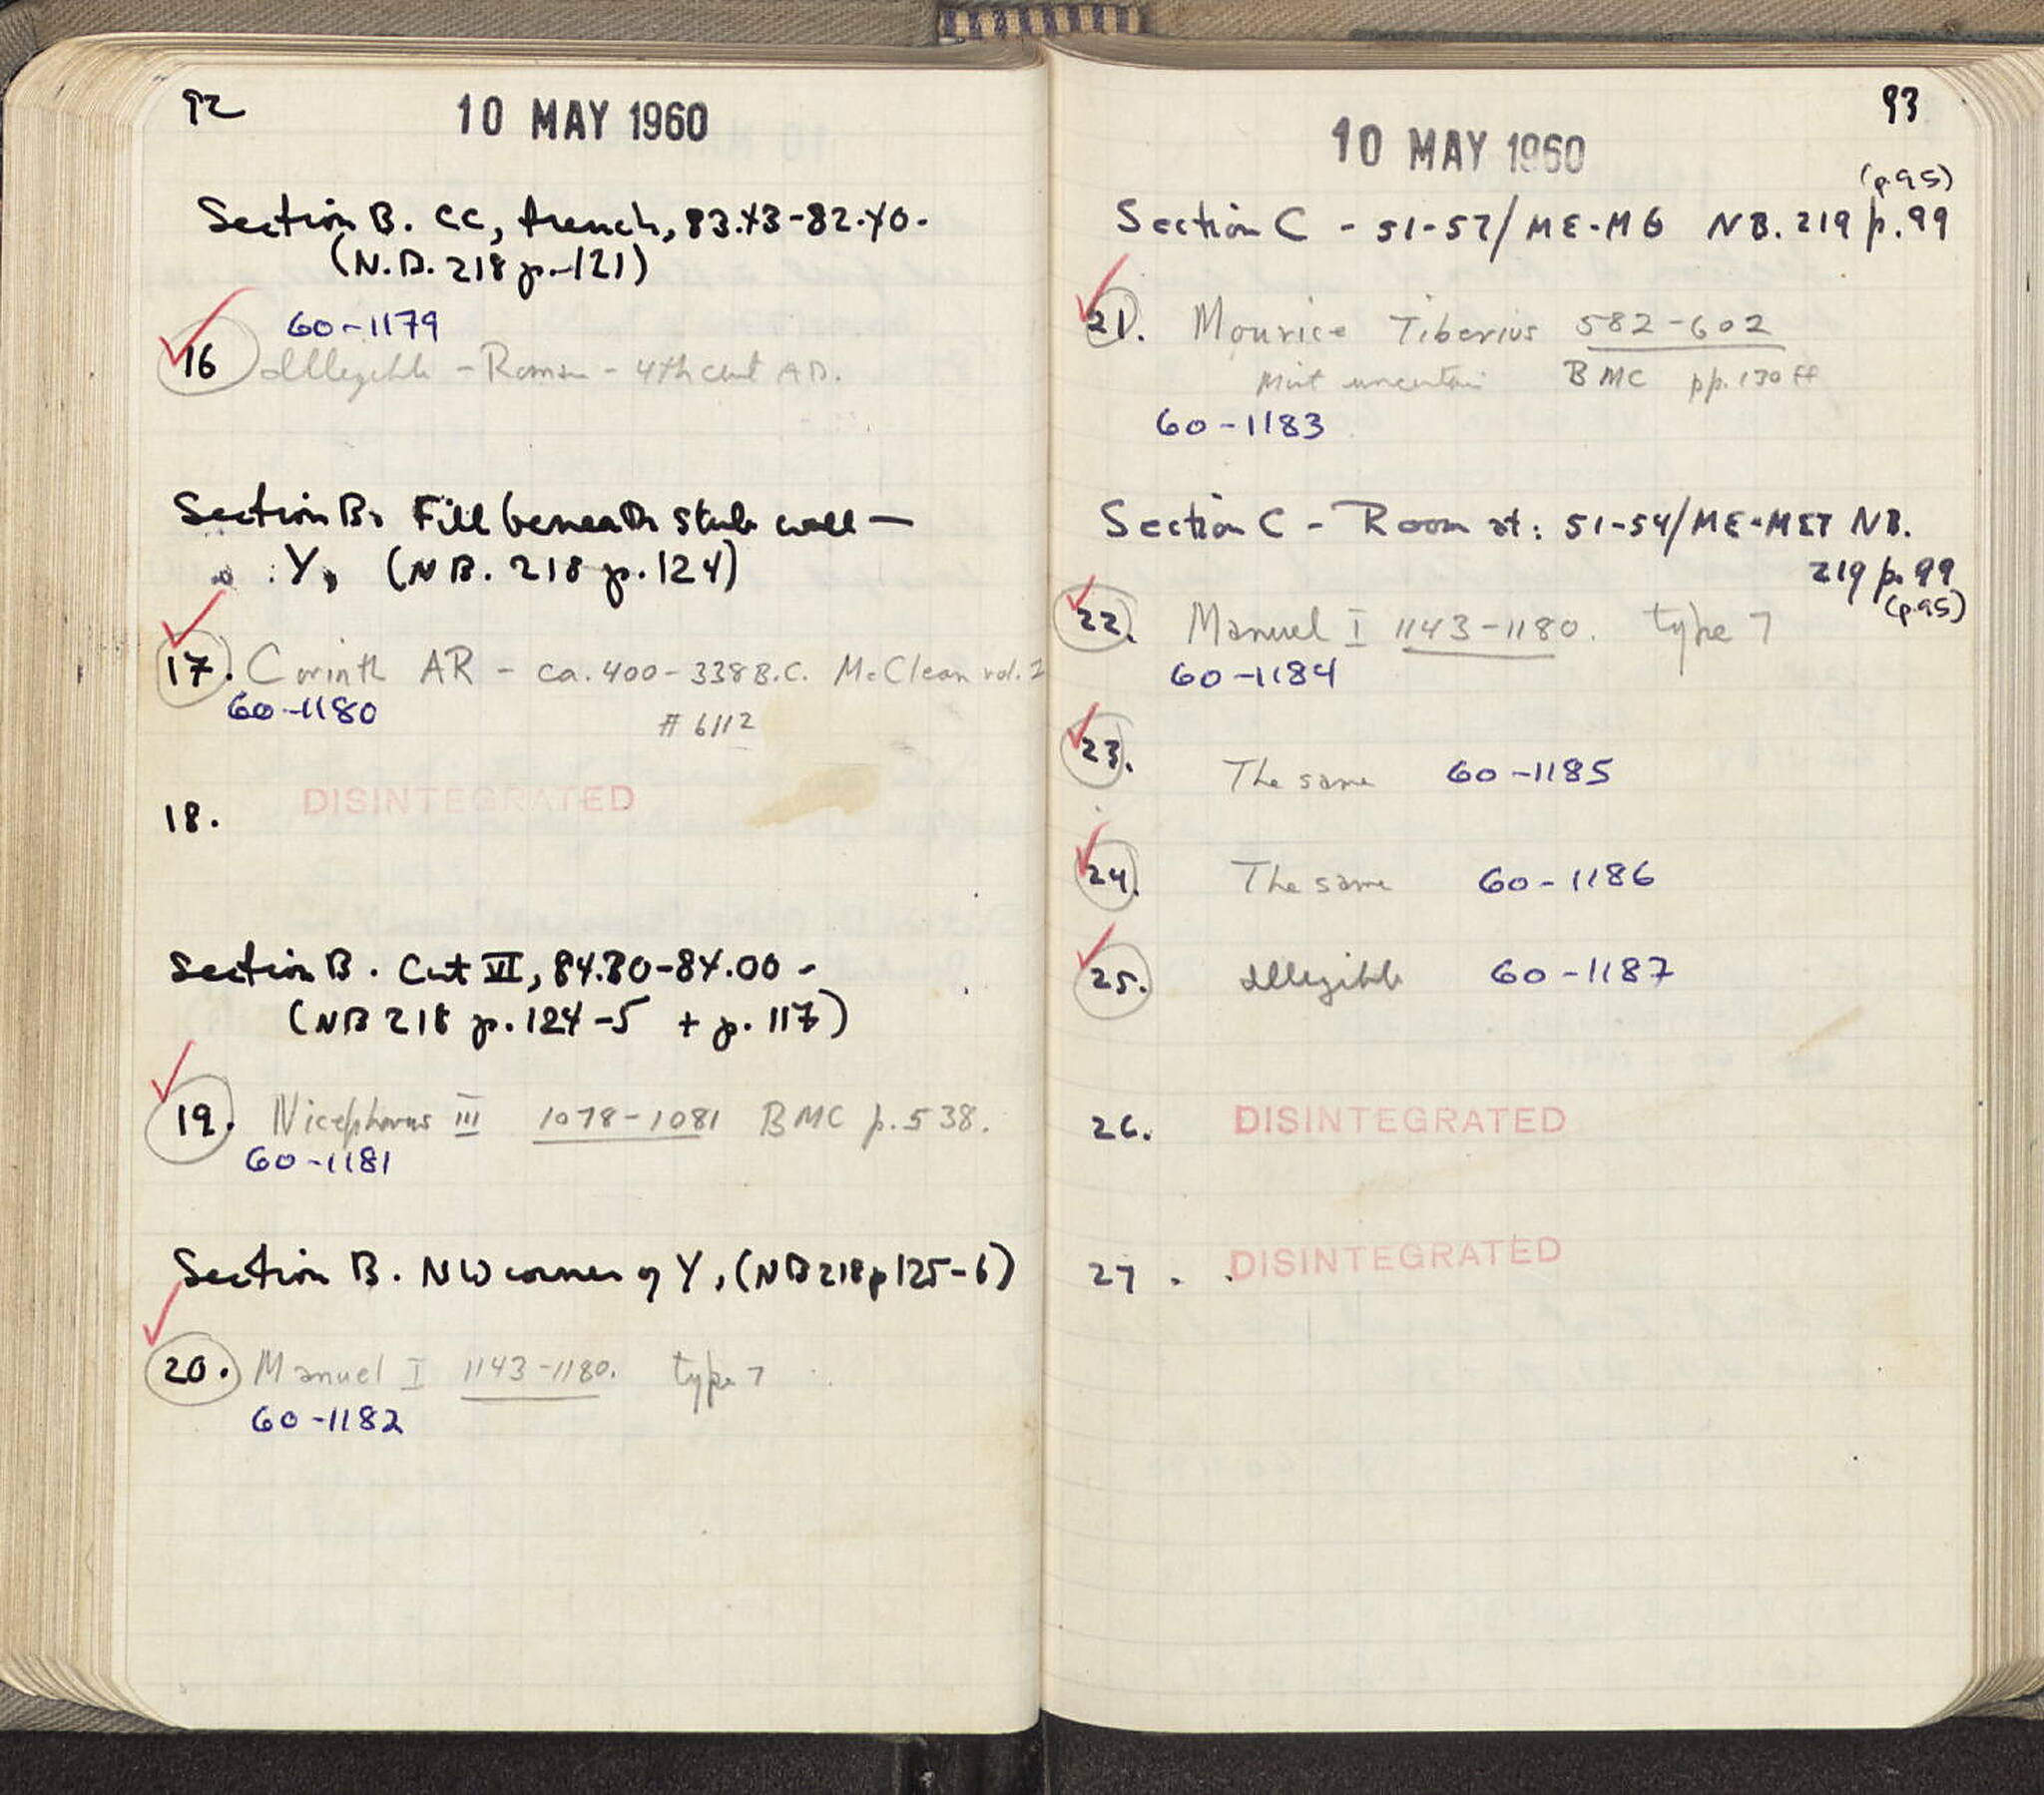 92
10 MAY 1960
Section B. CC, trench, 83.43-82.40-
(N.B. 218 p.-121)
60-1179
16 Illegible - Roman - 4th cent AD.
Section B. Fill beneath stub wall —
Y, (NB. 218 p.124)
17. Corinth AR - ca. 400-338 B.C. McClean vol. 2
60-1180 # 6112
18. DISINTEGRATED
Section B. Cut VI, 84.30-84.00 -
(NB 218 p.124-5 + p. 117)
19. Nicephorus III 1078-1081 BMC p.538.
60-1181
Section B. NW corner of Y, (NB 218 p 125-6)
20. Manuel I 1143-1180. type 7
60-1182
93
10 MAY 1960
(p.95)
Section C - 51-57/ME-MG NB. 219 p.99
21. Maurice Tiberius 582-602
Mint uncertain BMC pp. 130 ff
60-1183
Section C - Room at: 51-54/ME- NB.
219 p. 99
(p.95)
22. Manuel I 1143-1180. type 7
60-1184
23. The same 60-1185
24. The same 60-1186
25. Illegible 60-1187
26. DISINTEGRATED
27. DISINTEGRATED